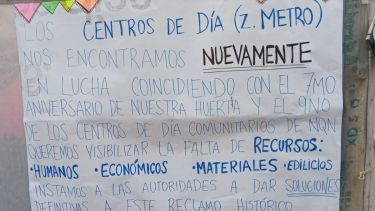 LOS CENTROS DE DÍA (Z. METRO)
NOS ENCONTRAMOS NUEVAMENTE
EN LUCHA COINCIDIENDO CON EL 7MO
ANIVERSARIO DE NUESTRA HUERTA Y EL 9NO
DE LOS CENTROS DE DÍA COMUNITARIOS DE NQN
QUEREMOS VISIBILIZAR LA FALTA DE RECURSOS:
·HUMANOS ·ECONÓMICOS ·MATERIALES ·EDILICIOS
INSTAMOS A LAS AUTORIDADES A DAR SOLUCIONES
DEFINITIVAS A ESTE RECLAMO HISTÓRICO